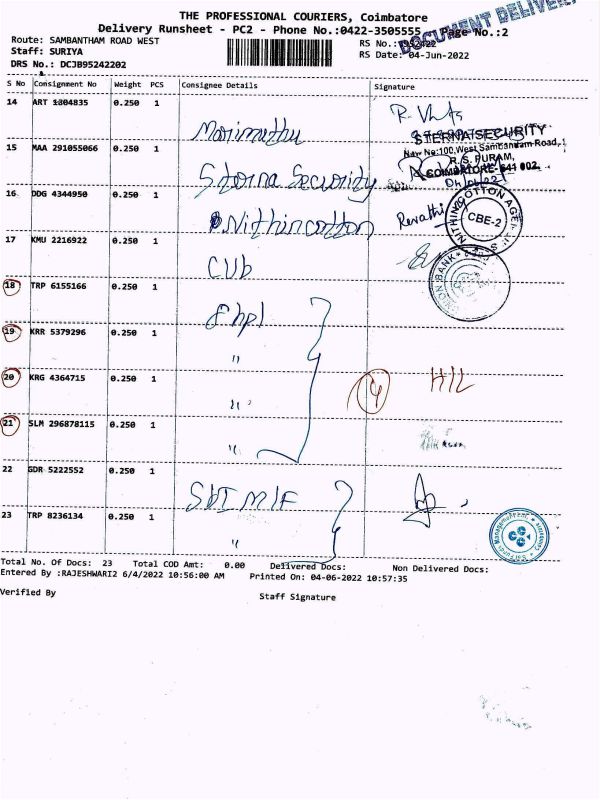 THE PROFESSIONAL COURIERS, Coimbatore
Delivery Runsheet - PC2 - Phone No.:0422-3505555 Page No.:2
DOCUMENT DELIVER
Route: SAMBANTHAM ROAD WEST
RS No.:
Staff: SURIYA
RS Date: 04-Jun-2022
DRS No.: DCJB95242202
S No Consignment No Weight PCS Consignee Details Signature
14 ART 1304835 0.250 1 Marimuthu
15 MAA 291055066 0.250 1 Sterna Security
STERNA SECURITY
New No:100,West Sambandam Road,
R. S. PURAM,
COIMBATORE- 641 002.
16 DDG 4344950 0.250 1 Nithincotton Revathi
NITHIN COTTON AGEN
CBE-2
17 KMU 2216922 0.250 1 CUb
UNION BANK
18 TRP 6155166 0.250 1
19 KRR 5379296 0.250 1 "
20 KRG 4364715 0.250 1 " 4 HIL
21 SLM 296878115 0.250 1 "
22 GDR 5222552 0.250 1 SbI MIF
23 TRP 8236134 0.250 1 "
SBI Funds Management
Total No. Of Docs: 23 Total COD Amt: 0.00 Delivered Docs: Non Delivered Docs:
Entered By :RAJESHWARI2 6/4/2022 10:56:00 AM Printed On: 04-06-2022 10:57:35
Verified By
Staff Signature